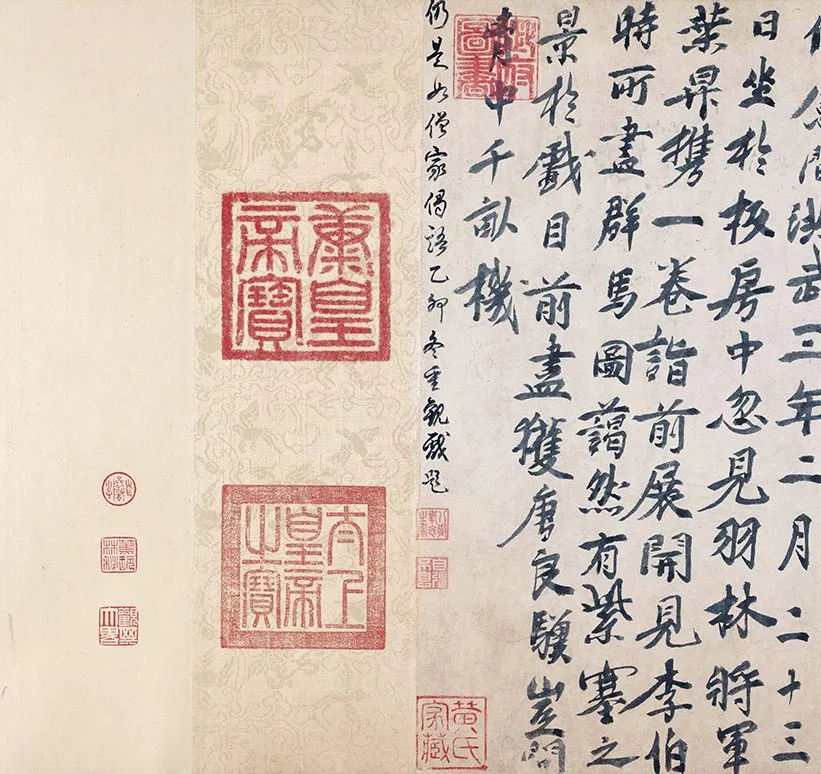 洪武三年二月二十三
日坐於板房中忽見羽林將軍
葉昇攜一卷詣前展開見李伯
時所畫群馬圖藹然有紫塞之
景於戲目前盡獲唐良驥豈問
中千畝機
仍是如僧家偈語乙卯冬重觀戲題
黃氏家藏
皇帝寶
太上皇帝之寶